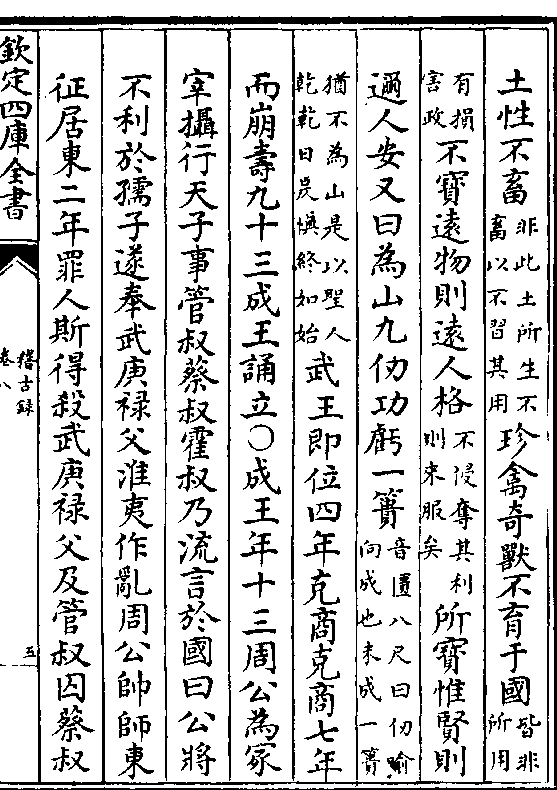 土性不畜非此土所生不畜以不習其用珍禽奇獸不育于國皆非所用
有損害政不寶遠物則遠人格不侵奪其利則来服矣所寶惟賢則
邇人安又曰為山九仞功虧一簣音匱八尺曰仞喻向成也未成一簣
猶不為山是以聖人乾乾日昃慎終如始武王即位四年克商克商七年
而崩壽九十三成王誦立○成王年十三周公為冢
宰攝行天子事管叔蔡叔霍叔乃流言於國曰公將
不利於孺子遂奉武庚禄父淮夷作亂周公帥師東
征居東二年罪人斯得殺武庚禄父及管叔囚蔡叔
欽定四庫全書
稽古録
卷八
五